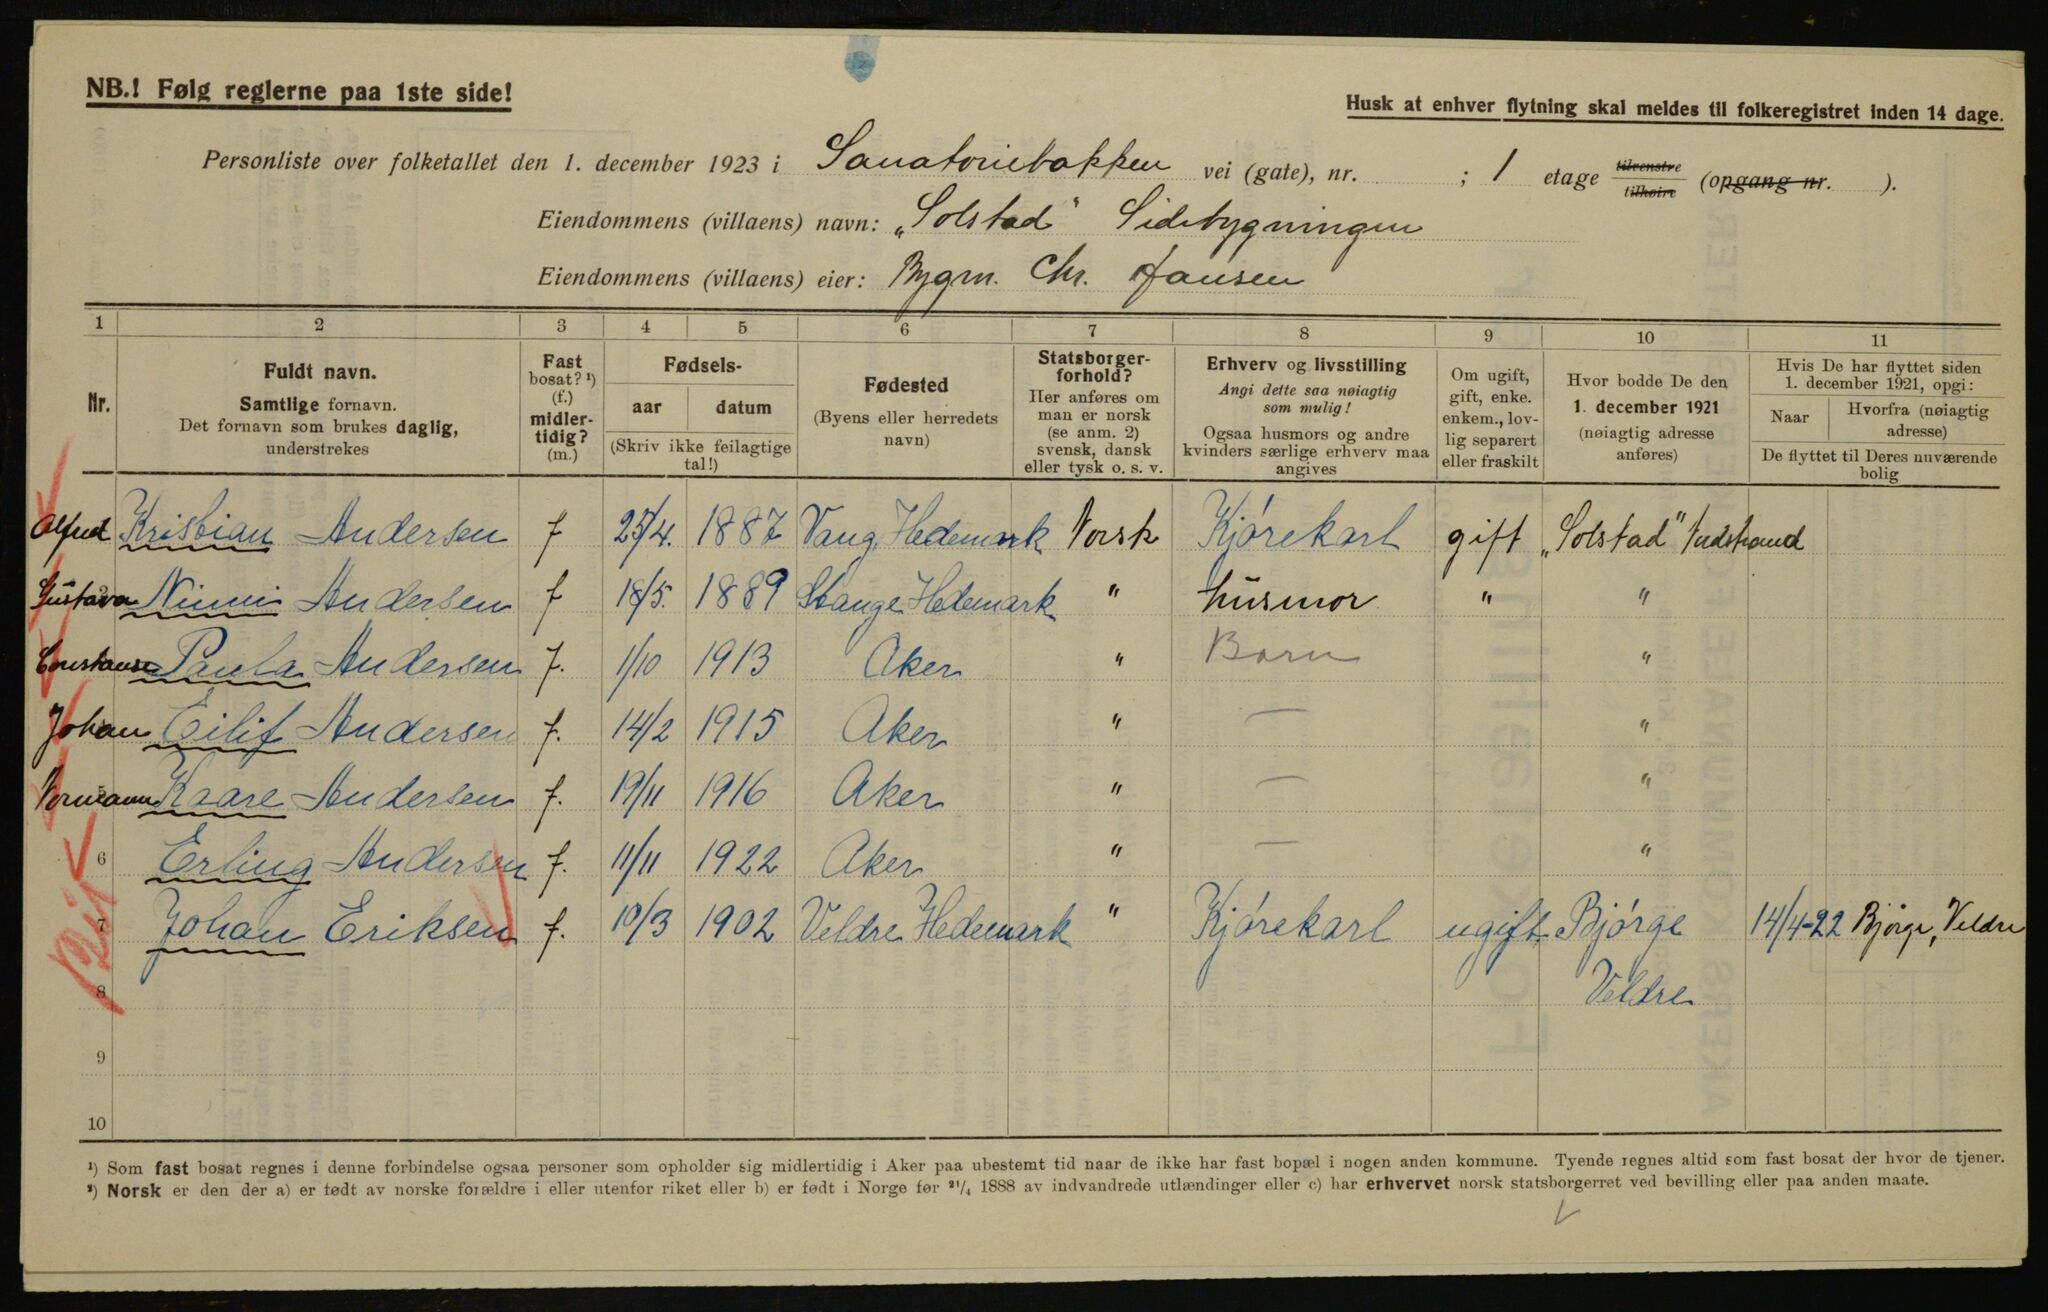 NB.! Følg reglerne paa 1ste side!
Husk at enhver flytning skal meldes til folkeregistret inden 14 dage.
Personliste over folketallet den 1. december 1923 i Sanatoriebakken vei (gate), nr. ; 1 etage tilvenstre tilhøire (opgang nr. ).
Eiendommens (villaens) navn: „Solstad“ Sidebygningen
Eiendommens (villaens) eier: Bygm. Chr. Hansen
1 2 3 4 5 6 7 8 9 10 11
Nr.
Fuldt navn.
Samtlige fornavn.
Det fornavn som brukes daglig,
understrekes
Fast
bosat? ¹)
(f.)
midler-
tidig?
(m.)
Fødsels-
aar datum
(Skriv ikke feilagtige
tal!)
Fødested
(Byens eller herredets
navn)
Statsborger-
forhold?
Her anføres om
man er norsk
(se anm. 2)
svensk, dansk
eller tysk o. s. v.
Erhverv og livsstilling
Angi dette saa nøiagtig
som mulig!
Ogsaa husmors og andre
kvinders særlige erhverv maa
angives
Om ugift,
gift, enke.
enkem., lov-
lig separert
eller fraskilt
Hvor bodde De den
1. december 1921
(nøiagtig adresse
anføres)
Hvis De har flyttet siden
1. december 1921, opgi:
Naar
Hvorfra (nøiagtig
adresse)
De flyttet til Deres nuværende
bolig
Alfred Kristian Andersen f 25/4. 1887 Vang, Hedemark Norsk Kjørekarl gift „Solstad“ Nordstrand
Gustava Ninni Andersen f 18/5. 1889 Stange Hedemark " husmor " "
Constanse Paula Andersen f. 1/10 1913 Aker " Barn "
Johan Eilif Andersen f. 14/2 1915 Aker " — "
Normann Kaare Andersen f. 19/11 1916 Aker " — "
6 Erling Andersen f. 11/11 1922 Aker " — "
7 Johan Eriksen f. 10/3 1902 Veldre Hedemark " Kjørekarl ugift Bjørge 14/4-22 Bjørge, Veldre
8 Veldre
9
10
¹) Som fast bosat regnes i denne forbindelse ogsaa personer som opholder sig midlertidig i Aker paa ubestemt tid naar de ikke har fast bopæl i nogen anden kommune. Tyende regnes altid som fast bosat der hvor de tjener.
²) Norsk er den der a) er født av norske forældre i eller utenfor riket eller b) er født i Norge før ²¹/₄ 1888 av indvandrede utlændinger eller c) har erhvervet norsk statsborgerret ved bevilling eller paa anden maate.